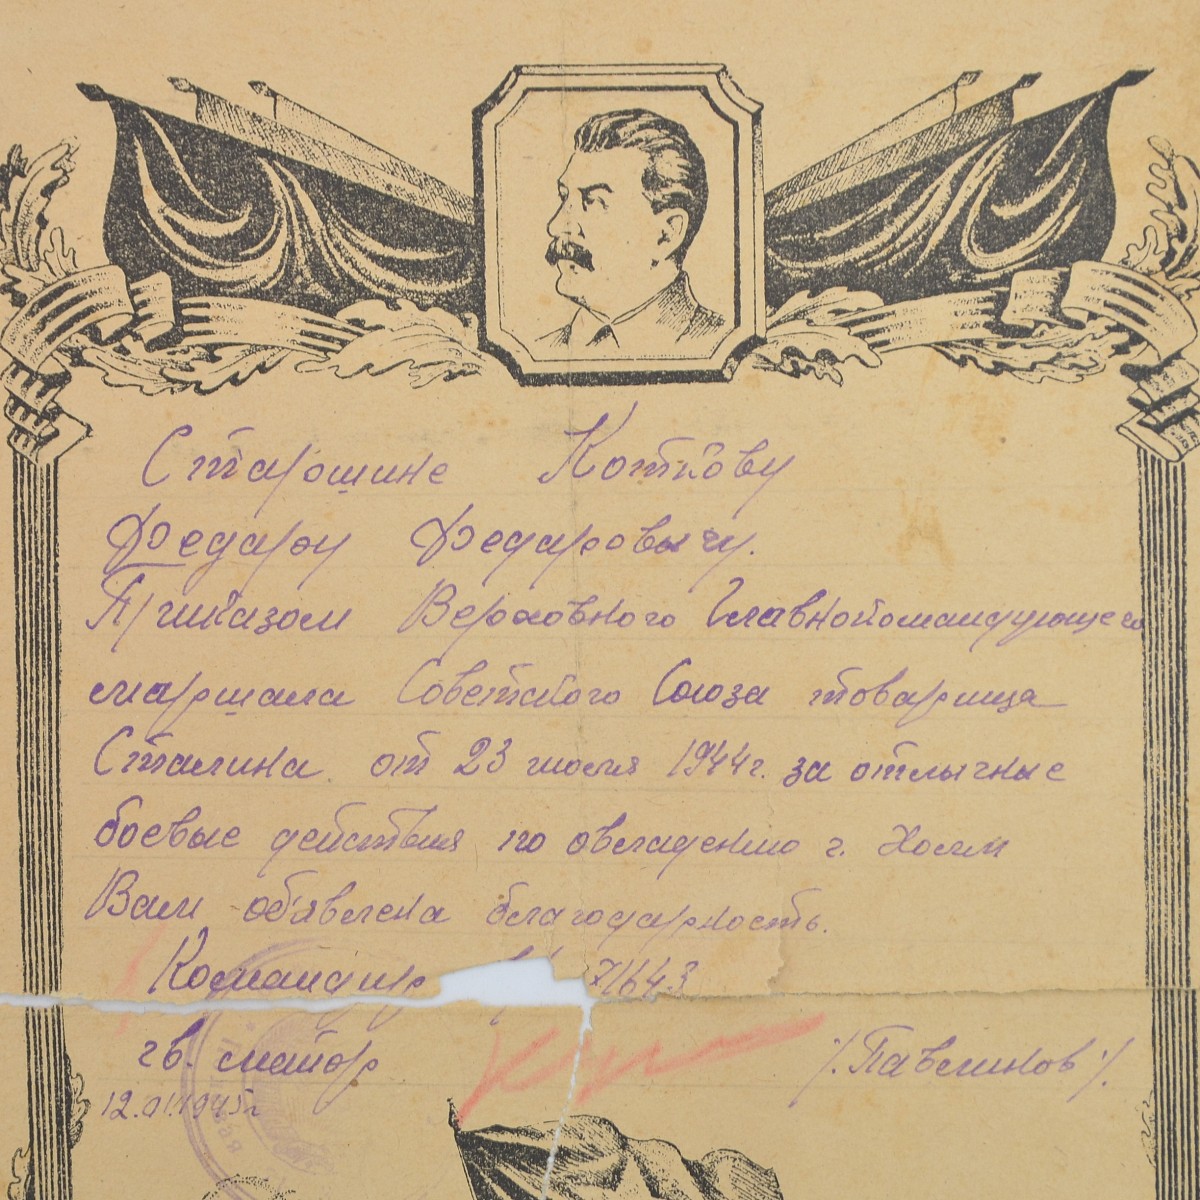 Старшине Коткову
Федару Федаровычу.
Приказом Верховного Главнокомандующего
маршала Советского Союза товарища
Сталина от 23 июля 1944 г. за отлычные
боевые действия по овладению г. Холм
Вам объявлена благодарность.
Командир 71643
гв. майор /Павлинов/
12.01.1945 г